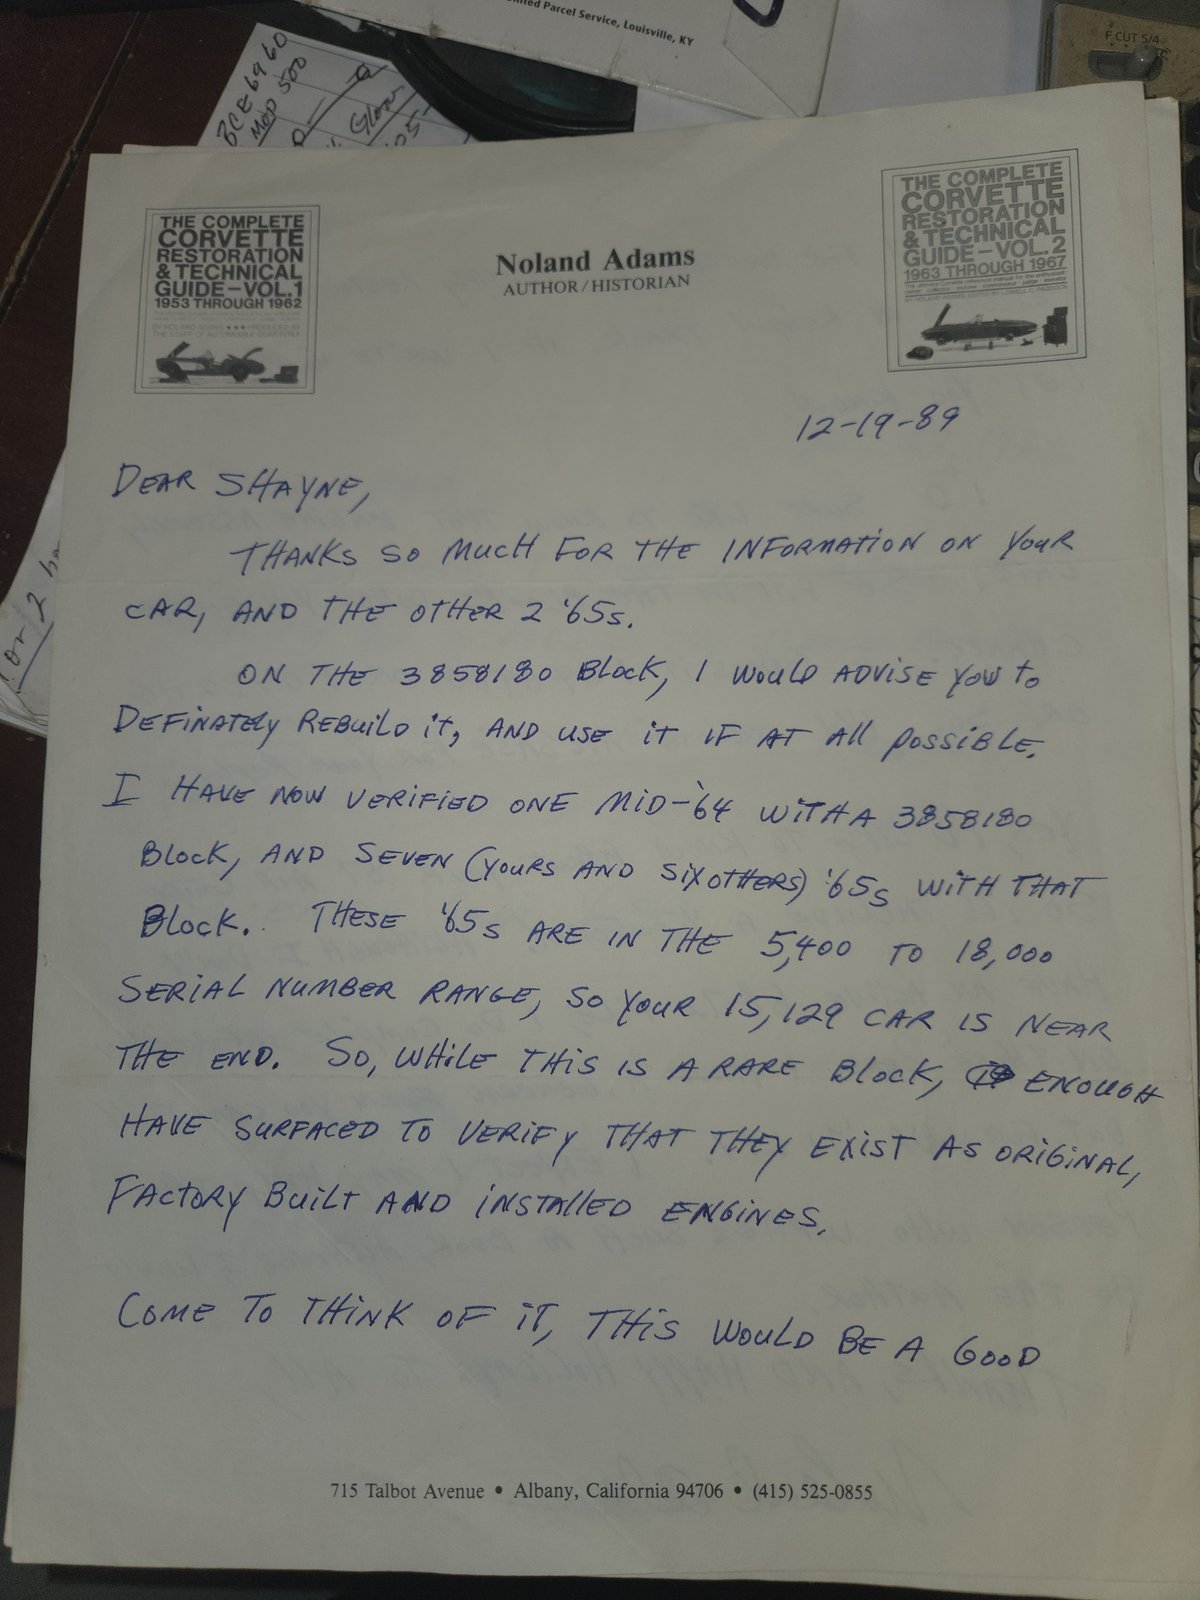 United Parcel Service, Louisville, KY
F CUT 5/4
BCE6960
MOD 500
Glow
or 2
THE COMPLETE
CORVETTE
RESTORATION
& TECHNICAL
GUIDE–VOL.1
1953 THROUGH 1962
BY NOLAND ADAMS ★★★ PRODUCED BY
THE STAFF OF AUTOMOBILE QUARTERLY
Noland Adams
AUTHOR/HISTORIAN
THE COMPLETE
CORVETTE
RESTORATION
& TECHNICAL
GUIDE–VOL.2
1963 THROUGH 1967
12-19-89
DEAR SHAYNE,
THANKS SO MUCH FOR THE INFORMATION ON YOUR
CAR, AND THE OTHER 2 '65s.
ON THE 3858180 BLOCK, I WOULD ADVISE YOU TO
DEFINATELY REBUILD IT, AND USE IT IF AT ALL POSSIBLE.
I HAVE NOW VERIFIED ONE MID-'64 WITH A 3858180
BLOCK, AND SEVEN (YOURS AND SIX OTHERS) '65s WITH THAT
BLOCK. THESE '65s ARE IN THE 5,400 TO 18,000
SERIAL NUMBER RANGE, SO YOUR 15,129 CAR IS NEAR
THE END. SO, WHILE THIS IS A RARE BLOCK, ENOUGH
HAVE SURFACED TO VERIFY THAT THEY EXIST AS ORIGINAL,
FACTORY BUILT AND INSTALLED ENGINES.
COME TO THINK OF IT, THIS WOULD BE A GOOD
715 Talbot Avenue • Albany, California 94706 • (415) 525-0855